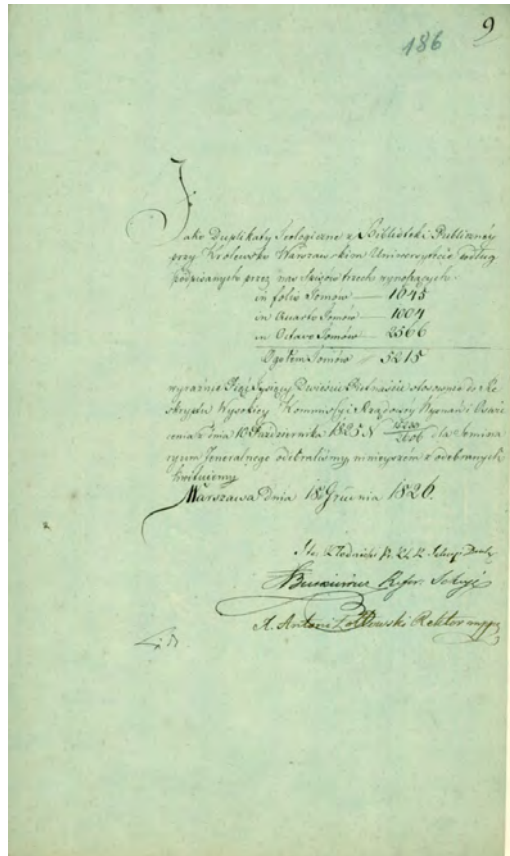 9
186
Jako Duplikaty Teologiczne z Biblioteki Publiczney
przy Królewsko Warszawskim Uniwersytecie według
podpisanych przez nas Spisów trzech wynoszących
in folio Tomów — 1645
in Quarto Tomów — 1004
in Octavo Tomów — 2566
Ogółem Tomów 5215
wyraźnie Pięć Tysięcy Dwieście Piętnaście stosownie do Re
skryptu Wysokiey Kommissyi Rządowey Wyznań i Oświe
cenia z dnia 10 Października 1825 N dla Semina
ryum Jeneralnego odebraliśmy, niniejszém z odebranych
kwitujemy
Warszawa dnia 18 Grudnia 1826.
Sekcyi
Refer. Sekcyi
X. Antoni Rektor mppa